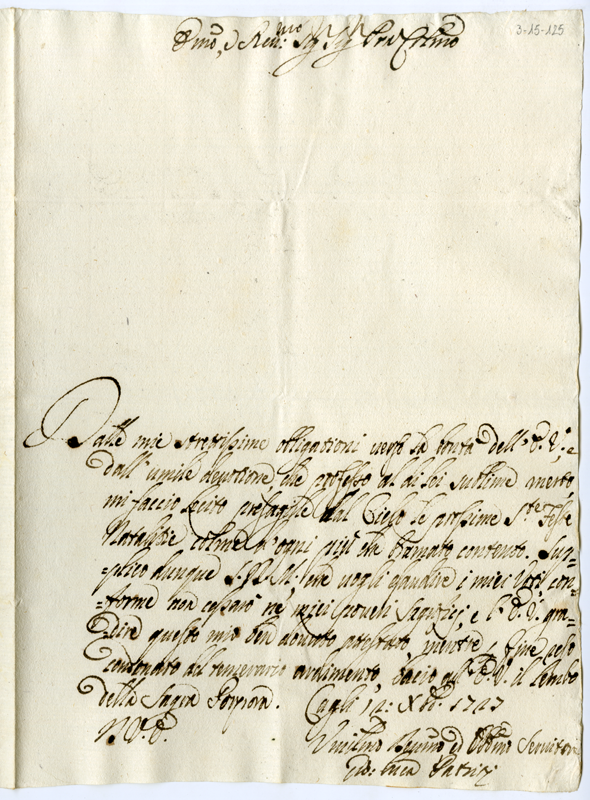 3-15-125
Emõ, e Reu:mo Sig Sig Prõn Colmo
Dalle mie strettissime obligationi verso la bontà dell'E: V:, e
dall' umile devotione, che professo al di lei sublime merto,
mi faccio lecito presagirle dal Cielo le prossime S.te Feste
Natalizie colme d'ogni più bramato contento. Sup=
=plico dunque S. D. M: che vogli esaudire i miei Voti con=
=forme non cesserò ne' miei poveri Sagrifizi, e l'E: V: gra=
dire questo mio ben dovuto attestato, mentre, a fine
condonato del temerario ardimento, bacio all' E: V: il Lembo
della Sagra Porpora. Cagli 12: Xbre 1727
D. V. E.
Umilmo Devmo ed Obbmo Servitore
Gio: Luca